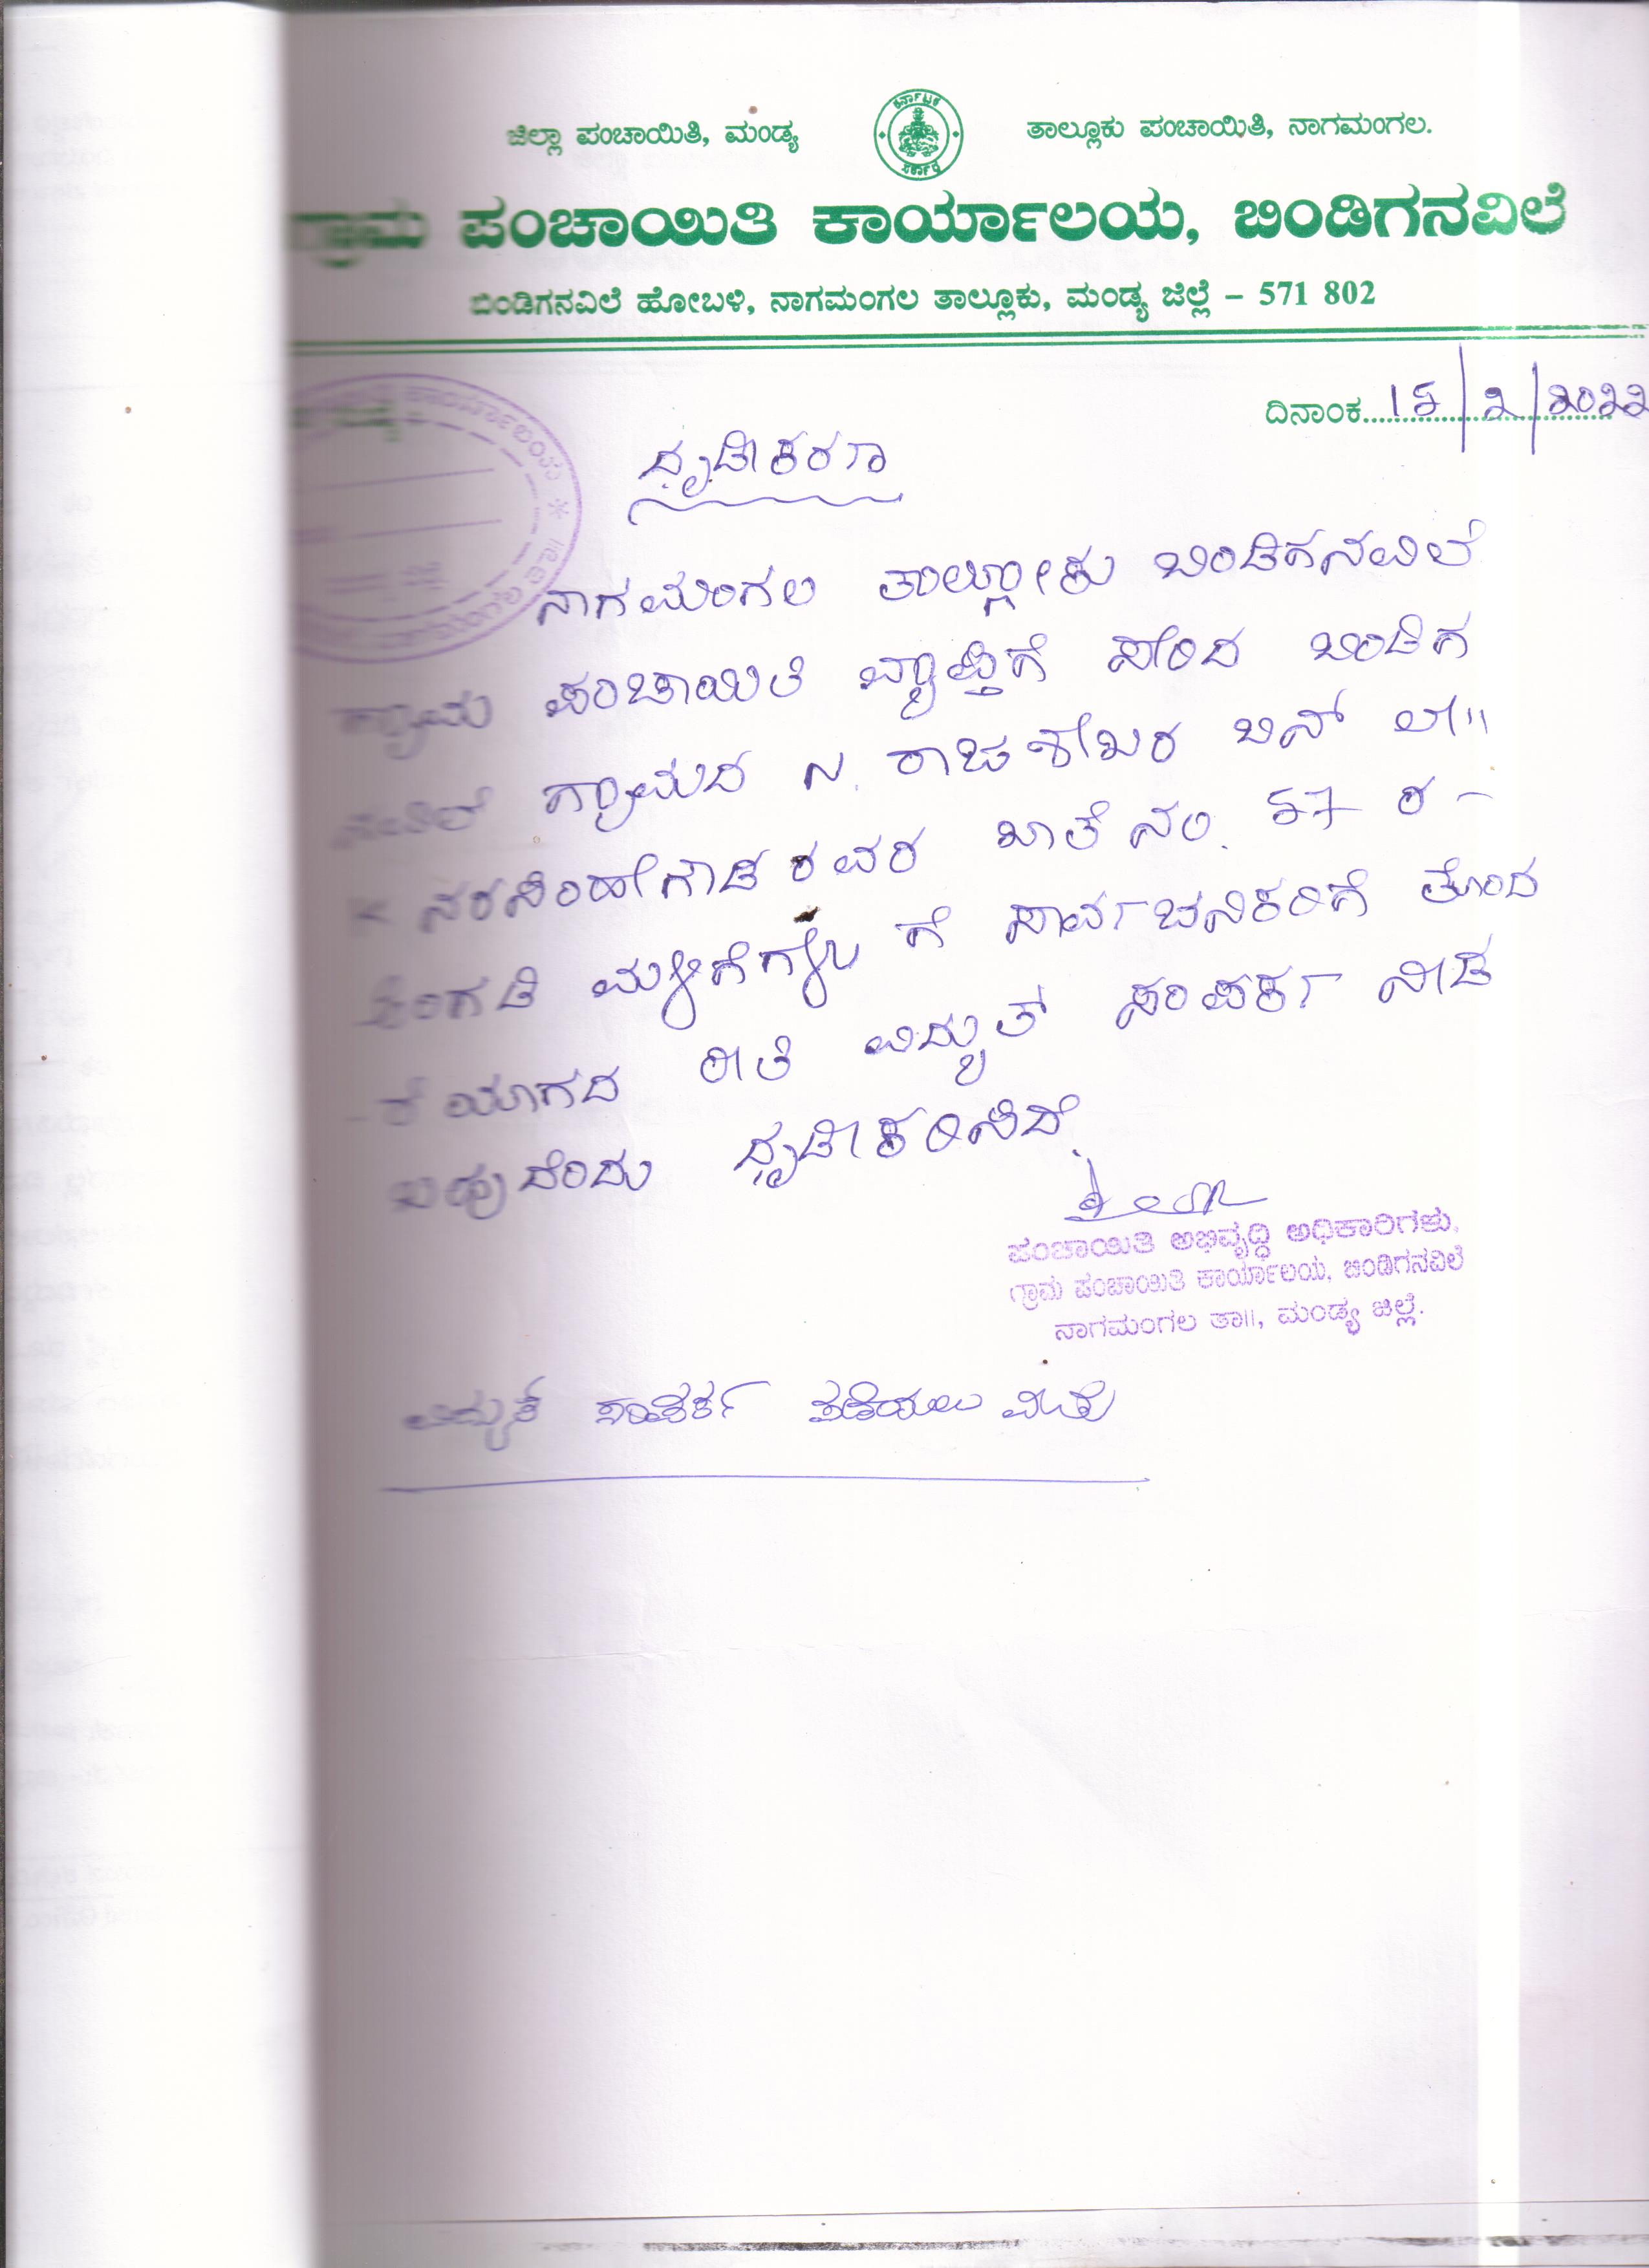 ಜಿಲ್ಲಾ ಪಂಚಾಯಿತಿ, ಮಂಡ್ಯ
ಕರ್ನಾಟಕ ಸರ್ಕಾರ
ತಾಲ್ಲೂಕು ಪಂಚಾಯಿತಿ, ನಾಗಮಂಗಲ.
ಗ್ರಾಮ ಪಂಚಾಯಿತಿ ಕಾರ್ಯಾಲಯ, ಬಿಂಡಿಗನವಿಲೆ
ಬಿಂಡಿಗನವಿಲೆ ಹೋಬಳಿ, ನಾಗಮಂಗಲ ತಾಲ್ಲೂಕು, ಮಂಡ್ಯ ಜಿಲ್ಲೆ – 571 802
ದಿನಾಂಕ 15/2/2022
ಧೃಡೀಕರಣ
ನಾಗಮಂಗಲ ತಾಲ್ಲೂಕು ಬಿಂಡಿಗನವಿಲೆ
ಗ್ರಾಮ ಪಂಚಾಯಿತಿ ವ್ಯಾಪ್ತಿಗೆ ಸೇರಿದ ಬಿಂಡಿಗ
ನವಿಲೆ ಗ್ರಾಮದ ನ. ರಾಜಶೇಖರ ಬಿನ್ ಲೇ॥
ನರಸಿಂಹೇಗೌಡ ರವರ ಖಾತೆ ನಂ. 57 ರ -
ಅಂಗಡಿ ಮಳಿಗೆಗಳಿಗೆ ಸಾರ್ವಜನಿಕರಿಗೆ ತೊಂದ
- ರೆಯಾಗದ ರೀತಿ ವಿದ್ಯುತ್ ಸಂಪರ್ಕ ನೀಡ
ಬಹುದೆಂದು ಧೃಡೀಕರಿಸಿದೆ.
ಪಂಚಾಯಿತಿ ಅಭಿವೃದ್ಧಿ ಅಧಿಕಾರಿಗಳು,
ಗ್ರಾಮ ಪಂಚಾಯಿತಿ ಕಾರ್ಯಾಲಯ, ಬಿಂಡಿಗನವಿಲೆ
ನಾಗಮಂಗಲ ತಾ॥, ಮಂಡ್ಯ ಜಿಲ್ಲೆ.
ವಿದ್ಯುತ್ ಸಂಪರ್ಕ ಪಡೆಯಲು ಮಾತ್ರ